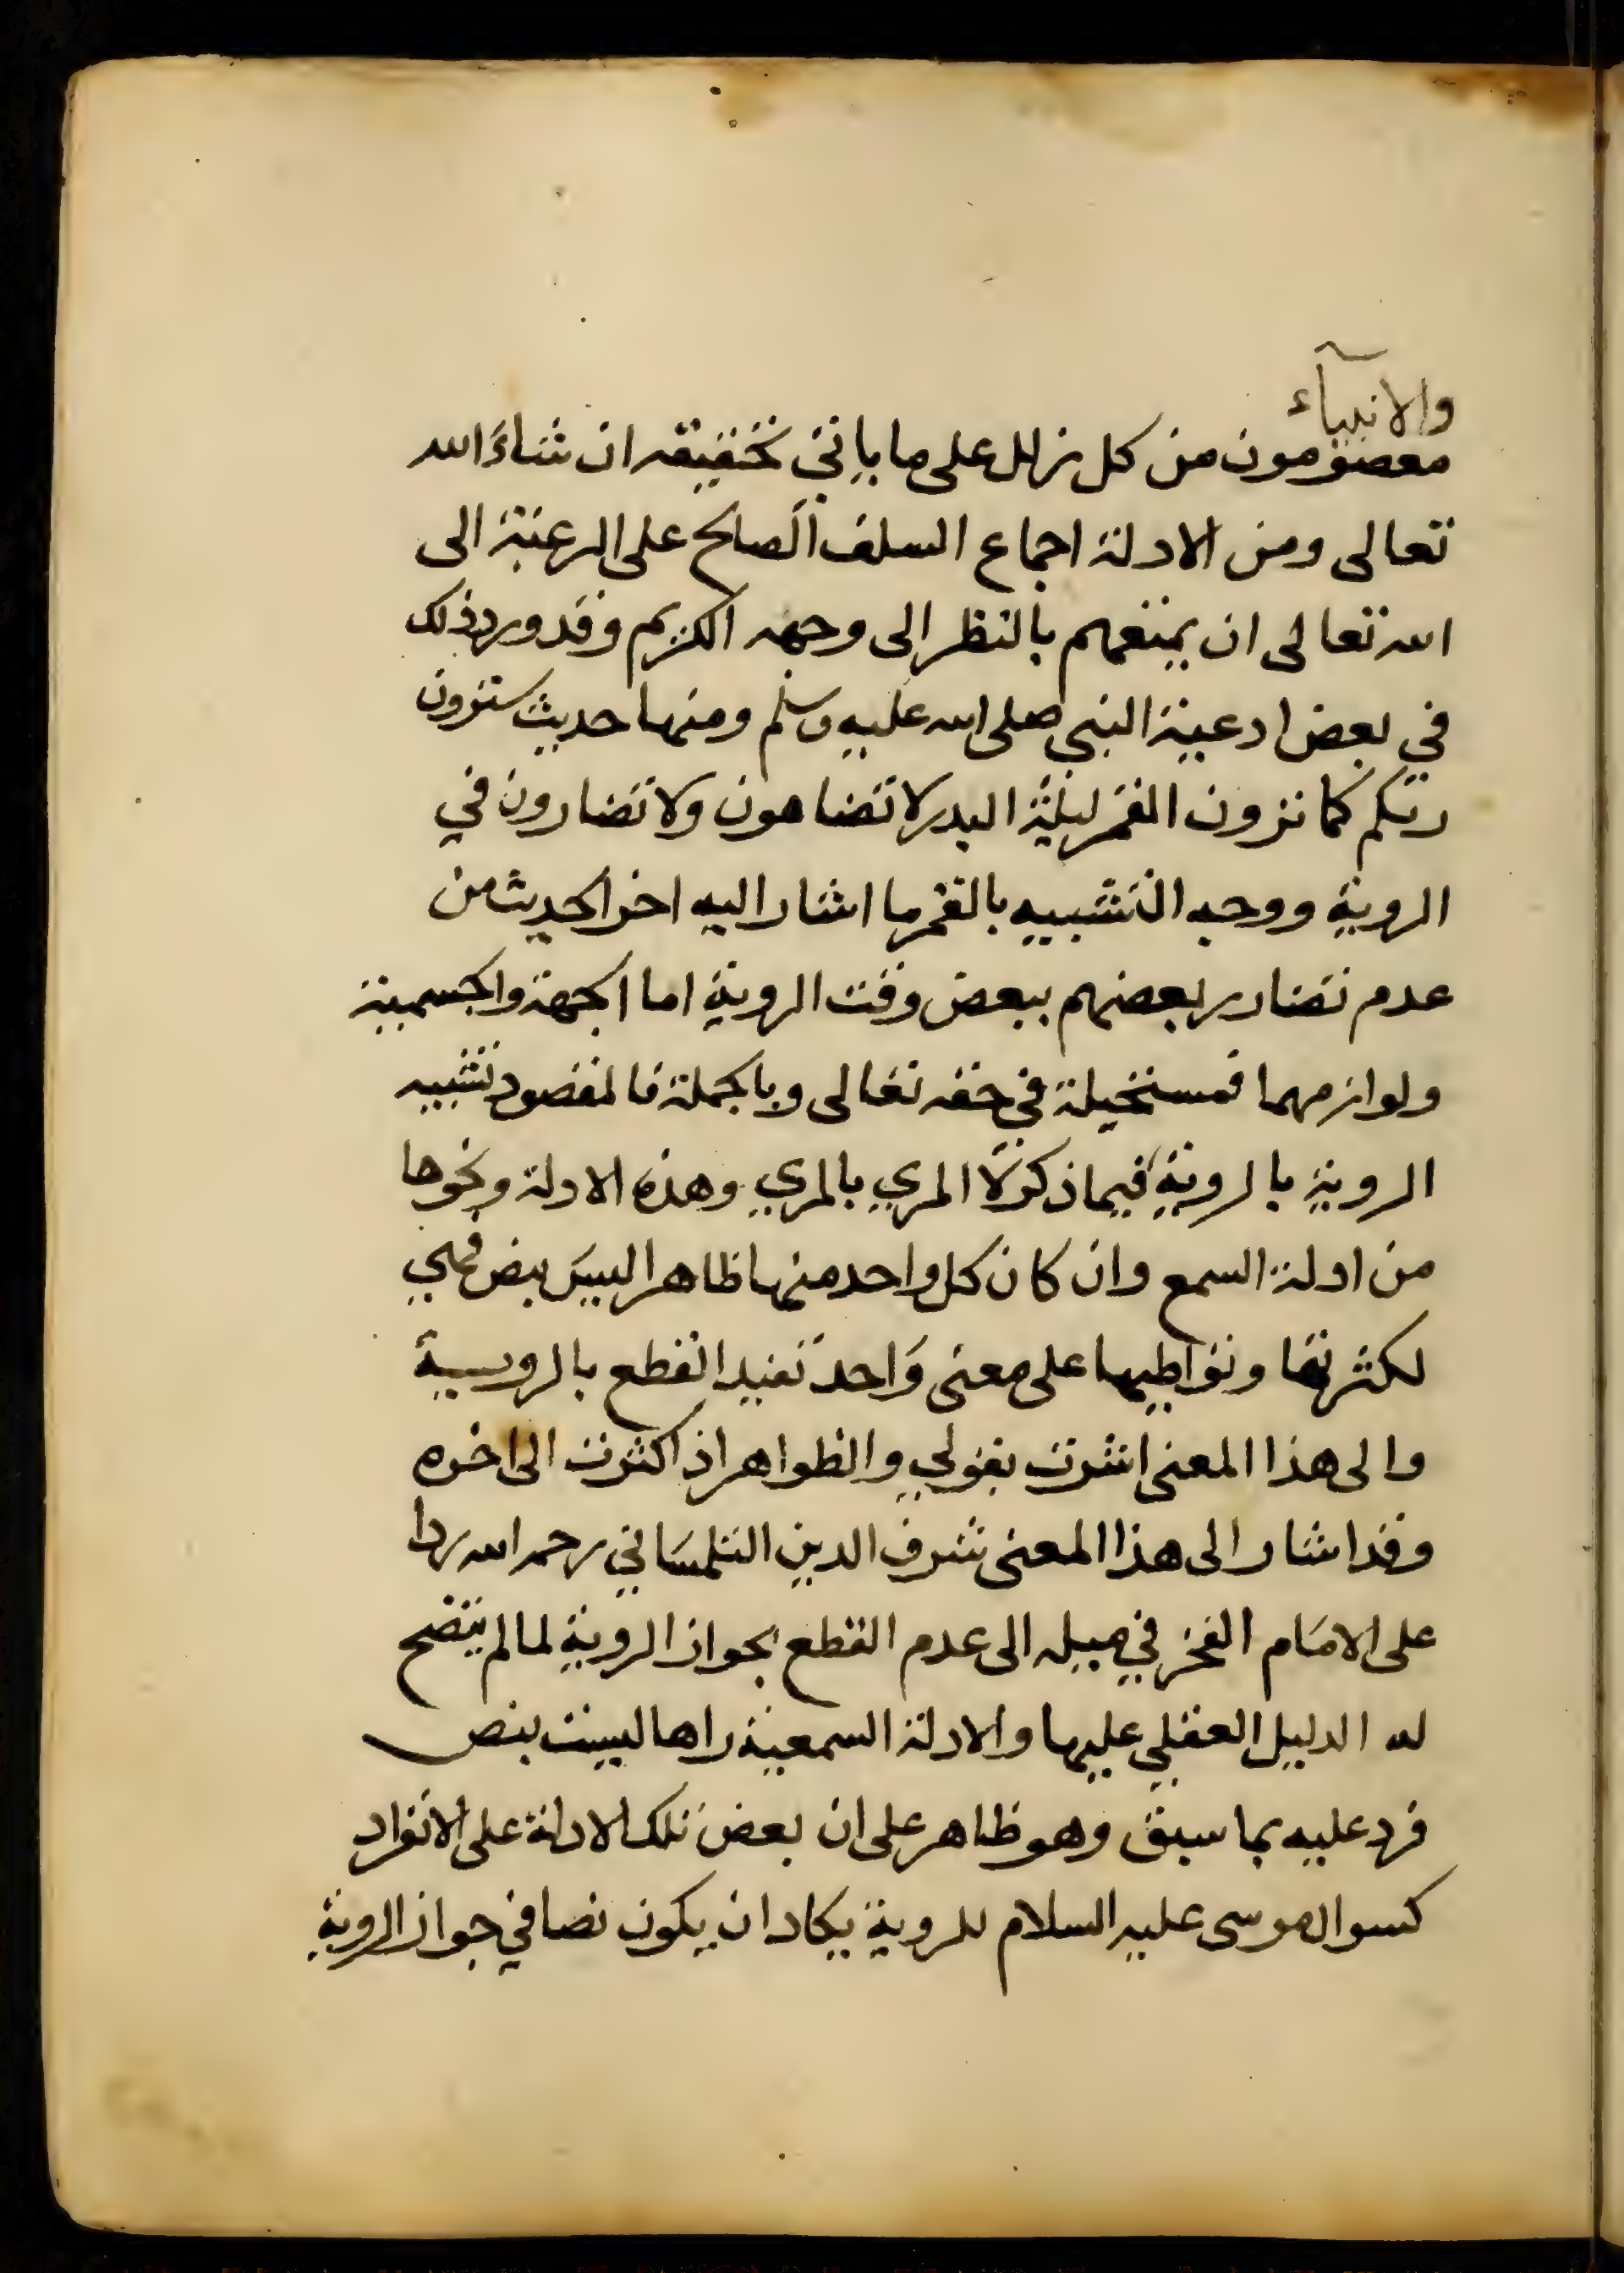 والانبيآء
معصومون من كل زلل على ما ياتي تحقيقه ان شاء الله
تعالى ومن الادلة اجماع السلف الصالح على الرغبة الى
الله تعالى ان يمتعهم بالنظر الى وجهه الكريم وقد ورد ذلك
في بعض ادعية النبي صلى الله عليه وسلم ومنها حديث سترون
ربكم كما ترون القمر ليلة البدر لا تضاهون ولا تضارون في
الروية ووجه التشبيه بالقمر ما اشار اليه اخر الحديث من
عدم تضارر بعضهم ببعض وقت الروية اما الجهة والجسمية
ولوازمهما فمستحيلة في حقه تعالى وبالجملة فالمقصود تشبيه
الروية بالروية فيما ذكر لا المري بالمري وهذه الادلة ونحوها
من ادلة السمع وان كان كل واحد منها ظاهرا ليس بنص فهي
لكثرتها وتواطيها على معنى واحد تفيد القطع بالروية
والى هذا المعنى اشرت بقولي والظواهر اذا كثرت الى اخره
وقد اشار الى هذا المعنى شرف الدين التلمساني رحمه الله ردا
على الامام الفخر في ميله الى عدم القطع بجواز الروية لما لم يتضح
له الدليل العقلي عليها والادلة السمعية راها ليست بنص
فرد عليه بما سبق وهو ظاهر على ان بعض تلك الادلة على الانفراد
كسوال موسى عليه السلام للروية يكاد ان يكون نصا في جواز الروية